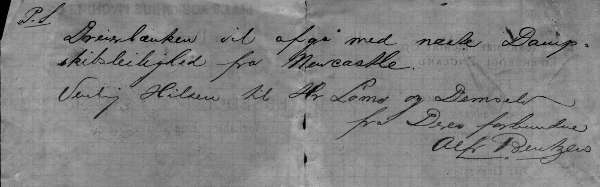 P.S.
Dreierbænken vil afgå med næste Damp-
skibsleilighed fra Newcastle.
Venlig Hilsen til Hr Lomo og Demselv
fra Deres forbundne
Alfr. Bentzen